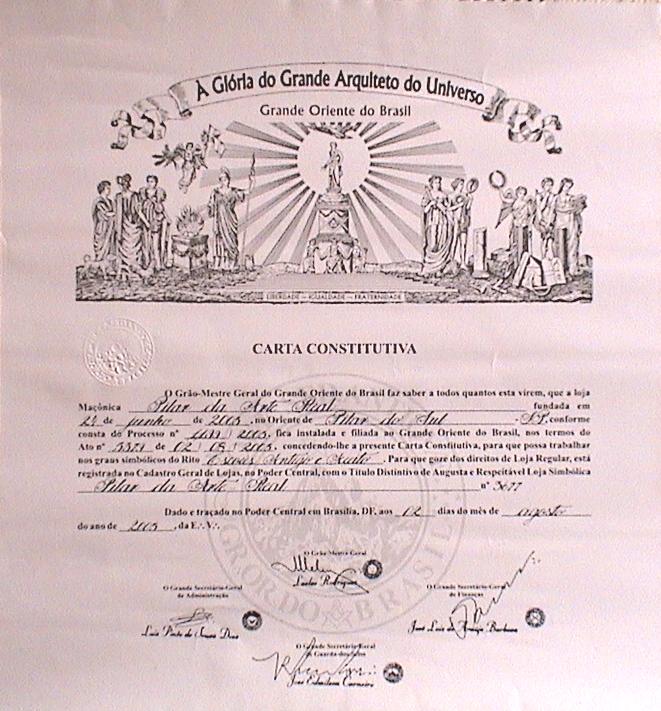 À Glória do Grande Arquiteto do Universo
Grande Oriente do Brasil
LIBERDADE — IGUALDADE — FRATERNIDADE
CARTA CONSTITUTIVA
O Grão-Mestre Geral do Grande Oriente do Brasil faz saber a todos quantos esta virem, que a loja
Maçônica Pilar da Arte Real fundada em
24 de junho de 2005, no Oriente de Pilar do Sul - SP, conforme
consta do Processo nº 2005, fica instalada e filiada ao Grande Oriente do Brasil, nos termos do
Ato nº de 02 / 08 / 2005, concedendo-lhe a presente Carta Constitutiva, para que possa trabalhar
nos graus simbólicos do Rito Escocês Antigo e Aceito. Para que goze dos direitos de Loja Regular, está
registrada no Cadastro Geral de Lojas, no Poder Central, com o Título Distintivo de Augusta e Respeitável Loja Simbólica
Pilar da Arte Real nº 3677
Dado e traçado no Poder Central em Brasília, DF, aos 02 dias do mês de agosto
do ano de 2005, da E∴ V∴
O Grão-Mestre Geral
Laelso Rodrigues
O Grande Secretário-Geral
de Administração
Luiz Pinto de Sousa Dias
O Grande Secretário-Geral
de Finanças
José Luiz de Araújo Barbosa
O Grande Secretário-Geral
da Guarda dos Selos
José Edmilson Carneiro
GR OR DO BRASIL